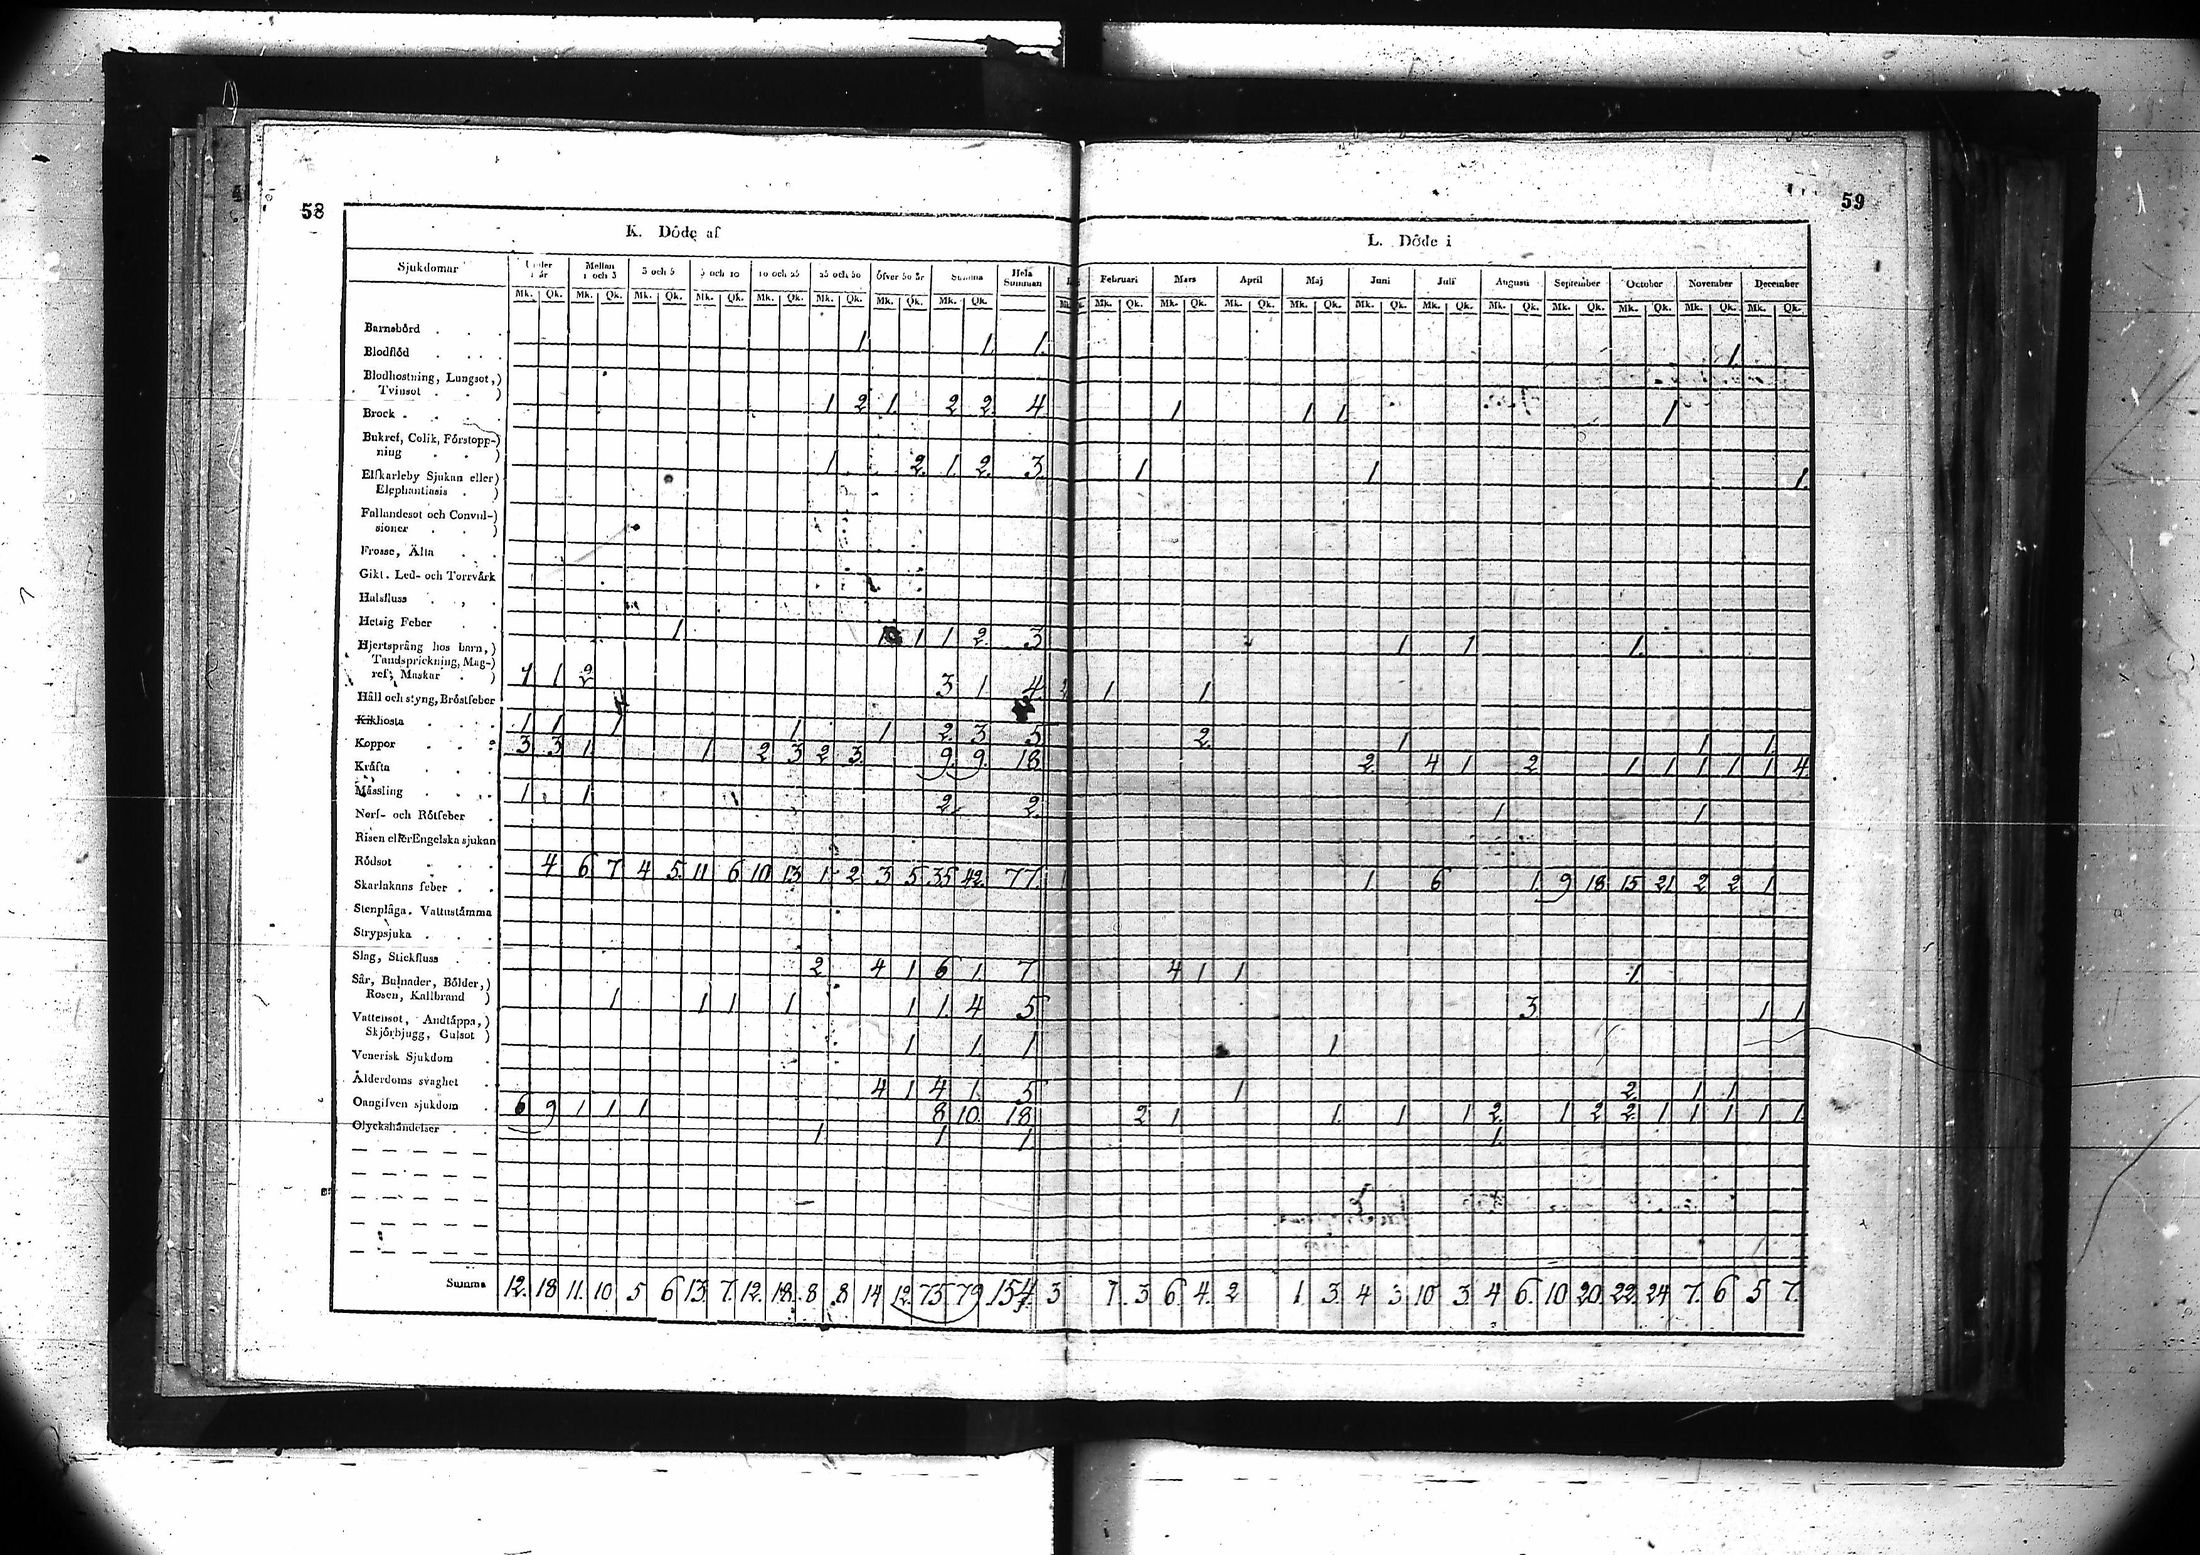 58
59
K. Döde af
L. Döde i
Sjukdomar Under 1 år Mellan 1 och 3 3 och 5 5 och 10 10 och 25 25 och 50 Öfver 50 år Summa Hela Summan
Februari Mars April Maj Juni Juli Augusti September October November December
Mk. Qk. Mk. Qk. Mk. Qk. Mk. Qk. Mk. Qk. Mk. Qk. Mk. Qk. Mk. Qk.
Mk. Qk. Mk. Qk. Mk. Qk. Mk. Qk. Mk. Qk. Mk. Qk. Mk. Qk. Mk. Qk. Mk. Qk. Mk. Qk. Mk. Qk.
Barnsbörd . . . 1 1. 1. 1.
Blodflöd . . . .
Blodhostning, Lungsot,)
Tvinsot . . ) 1 2 1. 2 2. 4 1 1 1 1
Brock . . . .
Bukref, Colik, Förstopp-)
ning . . ) 1 2. 1. 2. 3. 1 1 1.
Elfkarleby Sjukan eller)
Elephantiasis . )
Fallandesot och Convul-)
sioner . . )
Frosse, Älta . .
Gikt. Led- och Torrvärk
Halsfluss . , .
Hetsig Feber . . 1 1 1 2. 3 1 1 1.
Hjertsprång hos barn,)
Tandsprickning, Mag-)
ref, Maskar . ) 1 1 2 3 1 4 1 1
Håll och styng, Bröstfeber
Kikhosta . . . 1 1 1 1 1 2. 3 5 2. 1 1 1
Koppor . . . 3 3 1 1 2 3 2 3. 9. 9. 18 2. 4 1 2 1 1 1 1 1 4
Kräfta . . .
Mässling . . . 1 1 2. 2. 1 1
Nerf- och Rötfeber .
Risen eller Engelska sjukan
Rödsot . . . 4 6 7 4 5. 11 6 10 13 1 2. 3 5 35 42. 77. 1 1 6 1. 9 18 15 21 2 2 1
Skarlakans feber . .
Stenplåga. Vattustämma
Strypsjuka . . .
Slag, Stickfluss . . 2 4 1 6 1 7. 4 1 1 1
Sår, Bulnader, Bölder,)
Rosen, Kallbrand ) 1 1 1 1 1 1. 4 5 3 1 1
Vattensot, Andtäppa,)
Skjörbjugg, Gulsot ) 1 1. 1 1
Venerisk Sjukdom .
Ålderdoms svaghet . 4 1 4 1 5 1 2. 1 1
Oangifven sjukdom . 6 9 1 1 1 8 10. 18 2 1 1. 1 1 2. 1 2 2. 1 1 1 1 1.
Olyckshändelser . . 1. 1 1 1.
Summa 12. 18 11. 10 5 6 13. 7. 12. 18. 8 8 14 12. 75 79. 154. 3 7. 3 6 4. 2 1. 3. 4 3 10 3. 4 6. 10 20. 22. 24 7. 6 5 7.